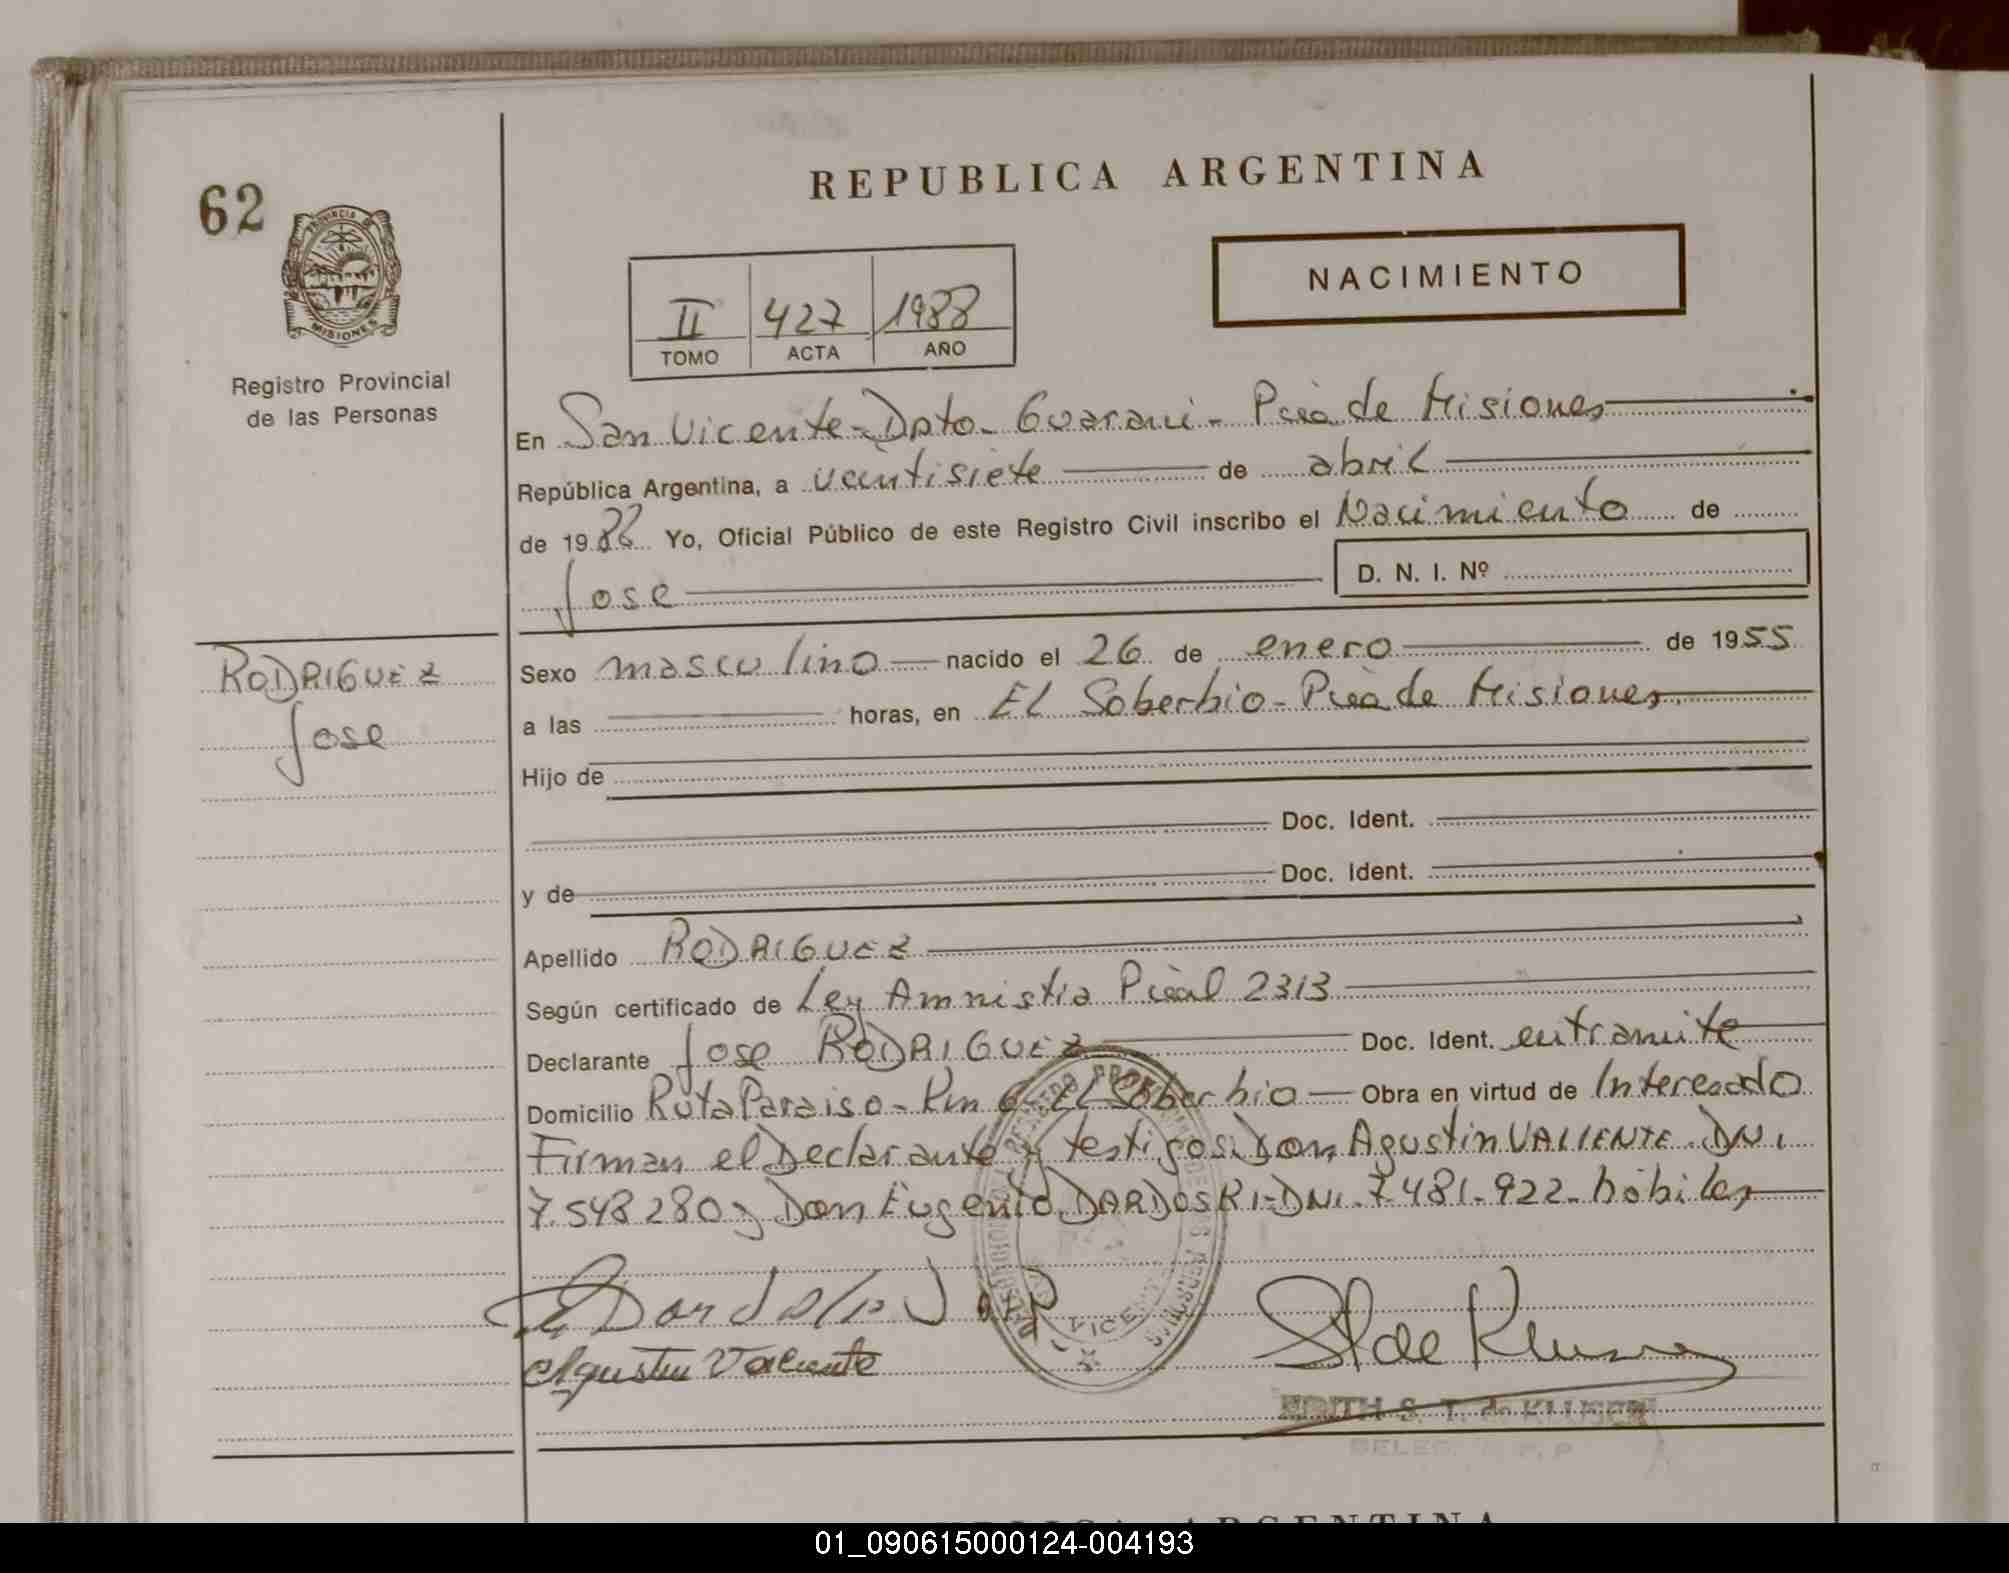 REPUBLICA ARGENTINA
62
PROVINCIA DE
MISIONES
Registro Provincial
de las Personas
NACIMIENTO
II 427 1988
TOMO ACTA AÑO
En San Vicente - Dpto. Guarani - Pcia de Misiones
República Argentina, a veintisiete de abril
de 1988 Yo, Oficial Público de este Registro Civil inscribo el Nacimiento de
Jose D. N. I. Nº
RODRIGUEZ
Jose
Sexo masculino nacido el 26 de enero de 1955
a las horas, en EL Soberbio - Pcia de Misiones
Hijo de
Doc. Ident.
y de Doc. Ident.
Apellido RODRIGUEZ
Según certificado de Ley Amnistia Pcial 2313
Declarante Jose RODRIGUEZ Doc. Ident. en tramite
Domicilio Ruta Paraiso - Km 6 - EL Soberbio Obra en virtud de Interesado
Firman el Declarante y testigos: Don Agustin VALIENTE. DNI.
7.548.280 y Don Eugenio DARDOSKI - DNI. 7.481.922 - hábiles
Agustin Valiente
EDITH S. T. de KLUSENER
01_090615000124-004193